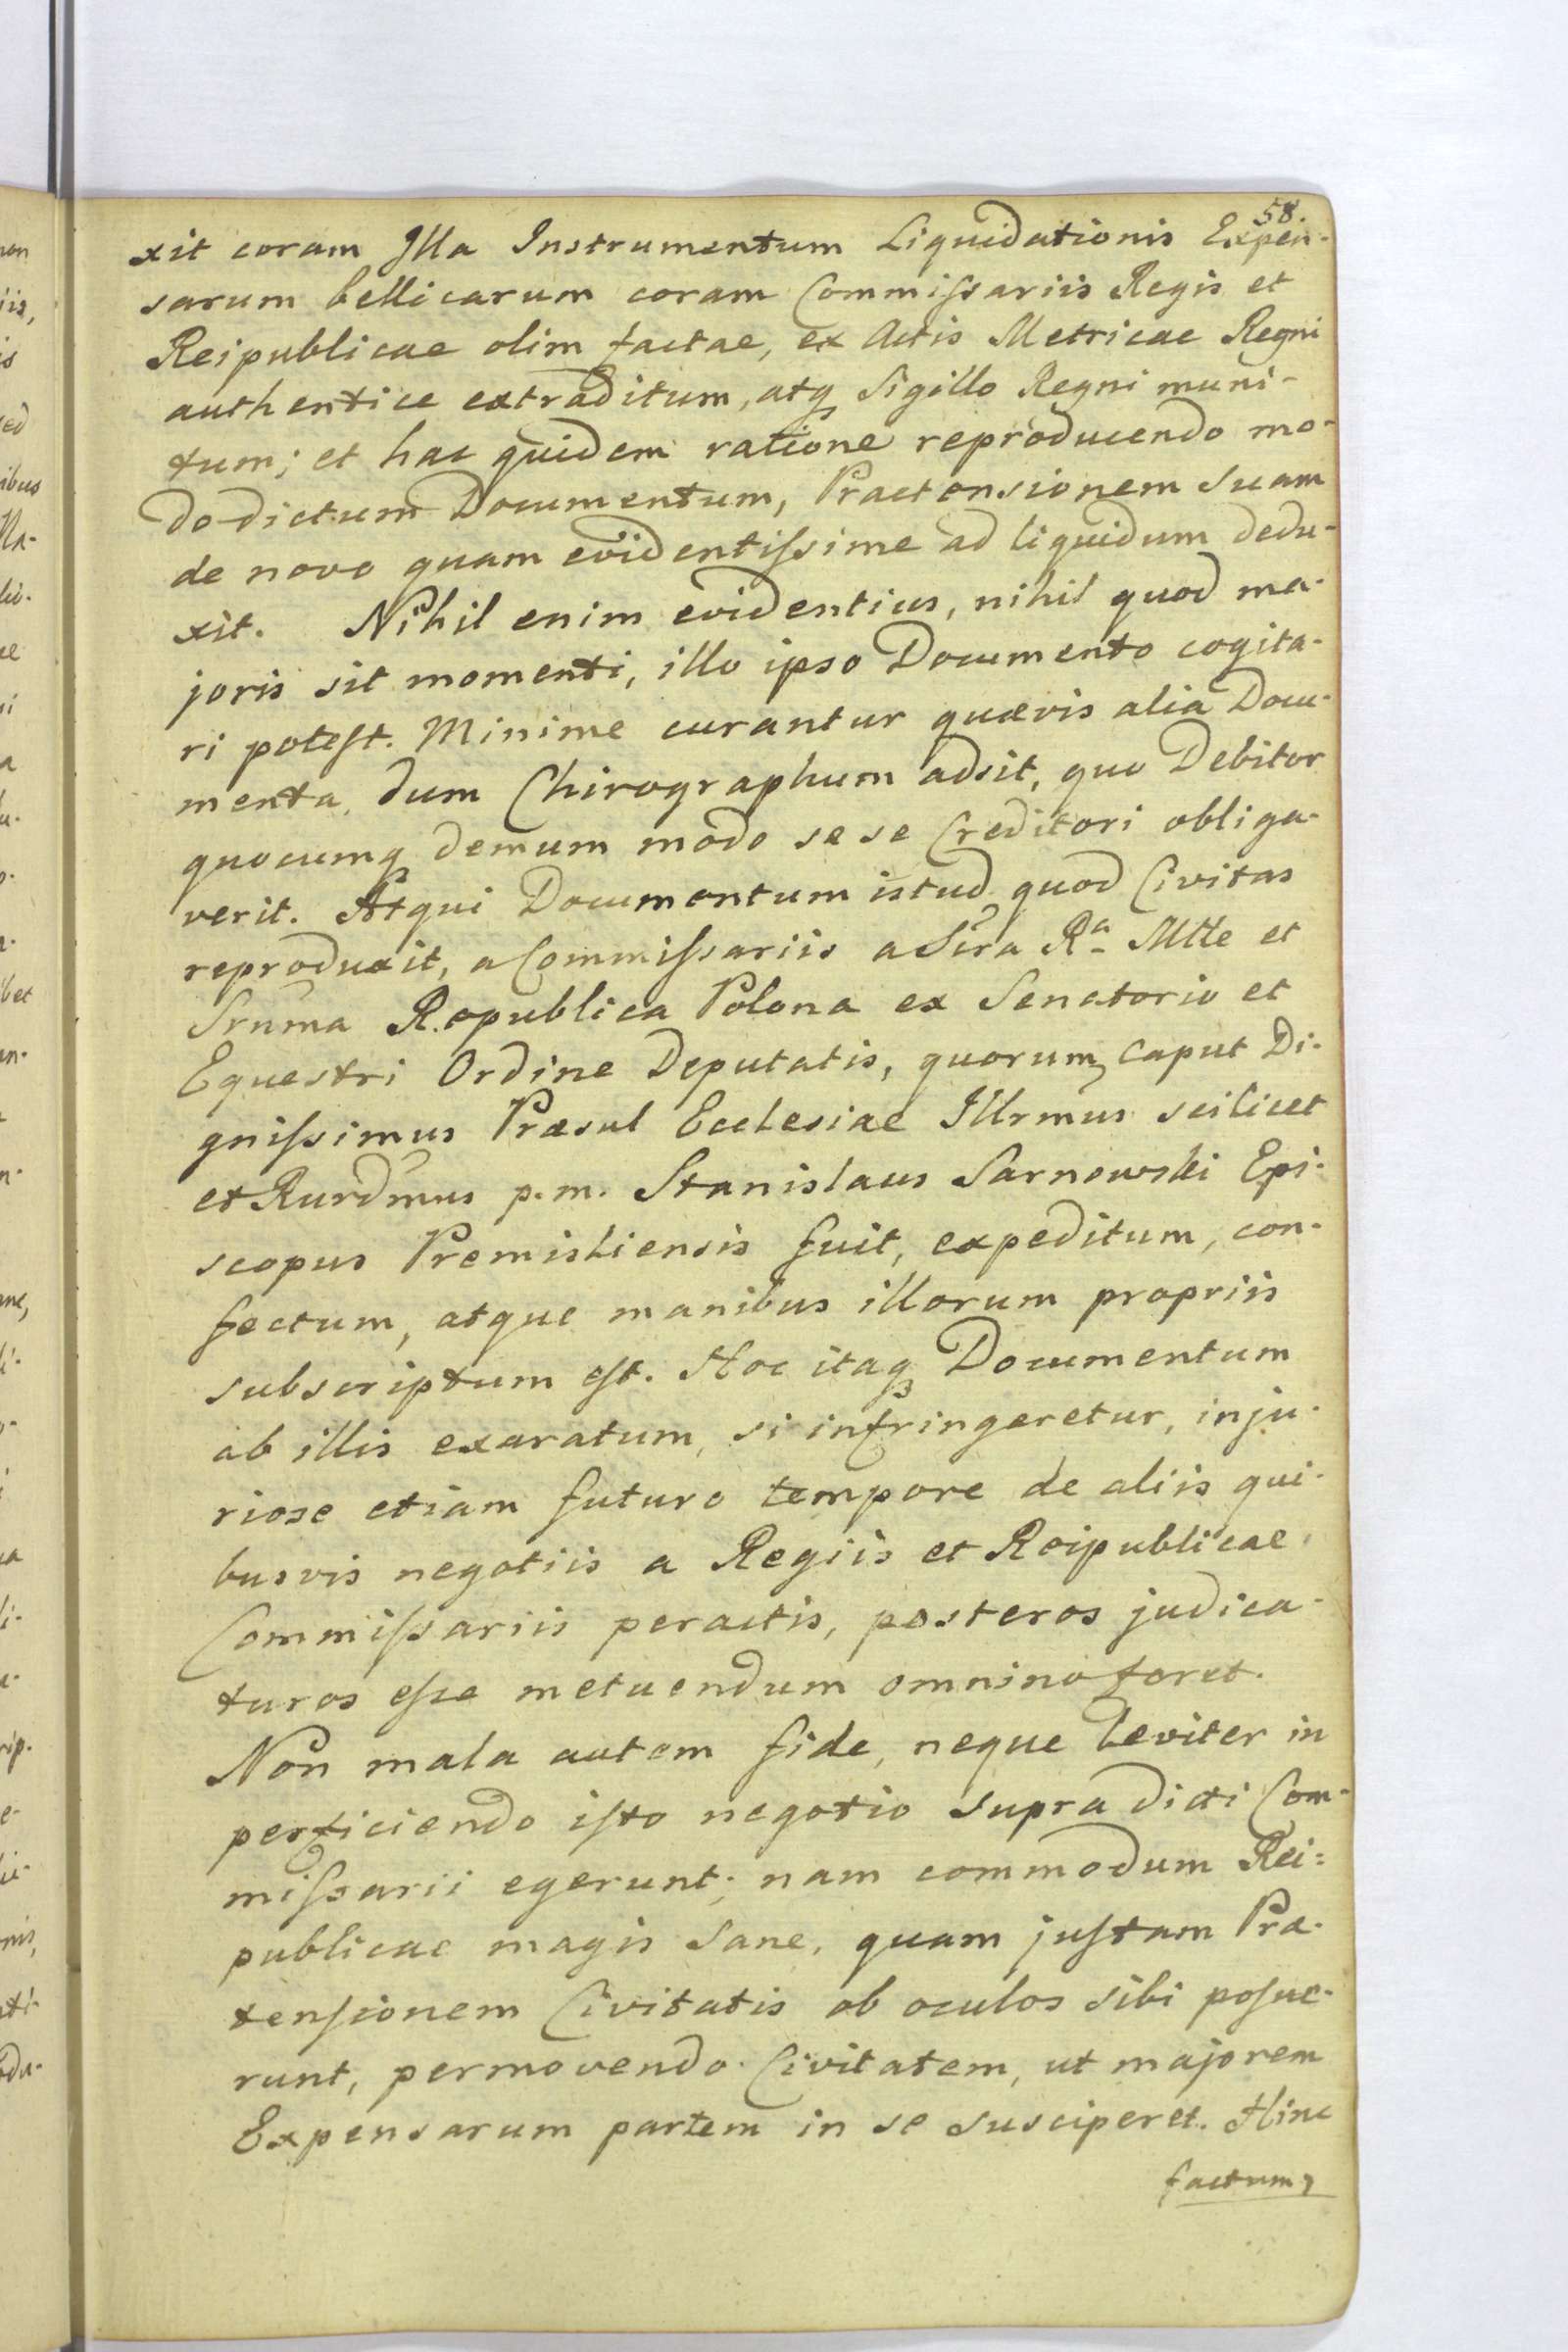 58.
xit coram Illa Instrumentum Liquidationis Expen-
sarum bellicarum coram Commiſsariis Regis et
Reipublicae olim factae, ex Actis Metricae Regni
authentice extraditum, atq Sigillo Regni muni-
tum; et hac quidem ratione reproducendo mo-
do dictum Documentum, Praetensionem suam
de novo quam evidentiſsime ad liquidum dedu-
xit. Nihil enim evidentius, nihil quod ma-
joris sit momenti, illo ipso Documento cogita-
ri poteſt. Minime curantur quævis alia Docu-
menta, dum Chirographum adsit, quo Debitor
quocumq demum modo sese Creditori obliga-
verit. Atqui Documentum istud quod Civitas
reproduxit, a Commiſsariis a Sera Ra Mtte et
Srnma Republica Polona ex Senatorio et
Equestri Ordine Deputatis, quorum caput Di-
gniſsimus Præsul Ecclesiae Illrmus scilicet
et Rurdmus p.m. Stanislaus Sarnowski Epi-
scopus Premisliensis fuit, expeditum, con-
fectum, atque manibus illorum propriis
subscriptum eſt. Hoc itaq Documentum
ab illis exaratum, si infringeretur, inju-
riose etiam futuro tempore de aliis qui-
busvis negotiis a Regiis et Reipublicae
Commiſsariis peractis, posteros judica-
turos eſse metuendum omnino foret.
Non mala autem fide, neque leviter in
perficiendo iſto negotio supra dicti Com-
miſsarii egerunt; nam commodum Rei=
publicae magis sane, quam juſtam Præ-
tenſionem Civitatis ob oculos sibi poſue-
runt, permovendo Civitatem, ut majorem
Expensarum partem in se susciperet. Hinc
factum,